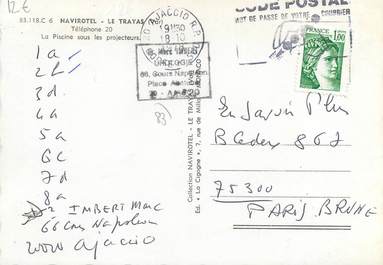 12€
83.118.C 6 NAVIROTEL - LE TRAYAS (Var)
Téléphone 20
La Piscine sous les projecteurs.
1a
2b
3d
4a
5a
6c
7d
8a
IMBERT Marc
66 Cours Napoleon
20000 ajaccio
20 AJACCIO R.P.
18-10
UROLOGIE
66, Cours Napoléon
Place Abattucci
20 - AJACCIO
83
Collection NAVIROTEL - LE TRAYAS
Ed. « La Cigogne », 7, rue de
CODE POSTAL
MOT DE PASSE DE VOTRE COURRIER
FRANCE
1,00
En Savoir Plus
867
75300
PARIS BRUNE